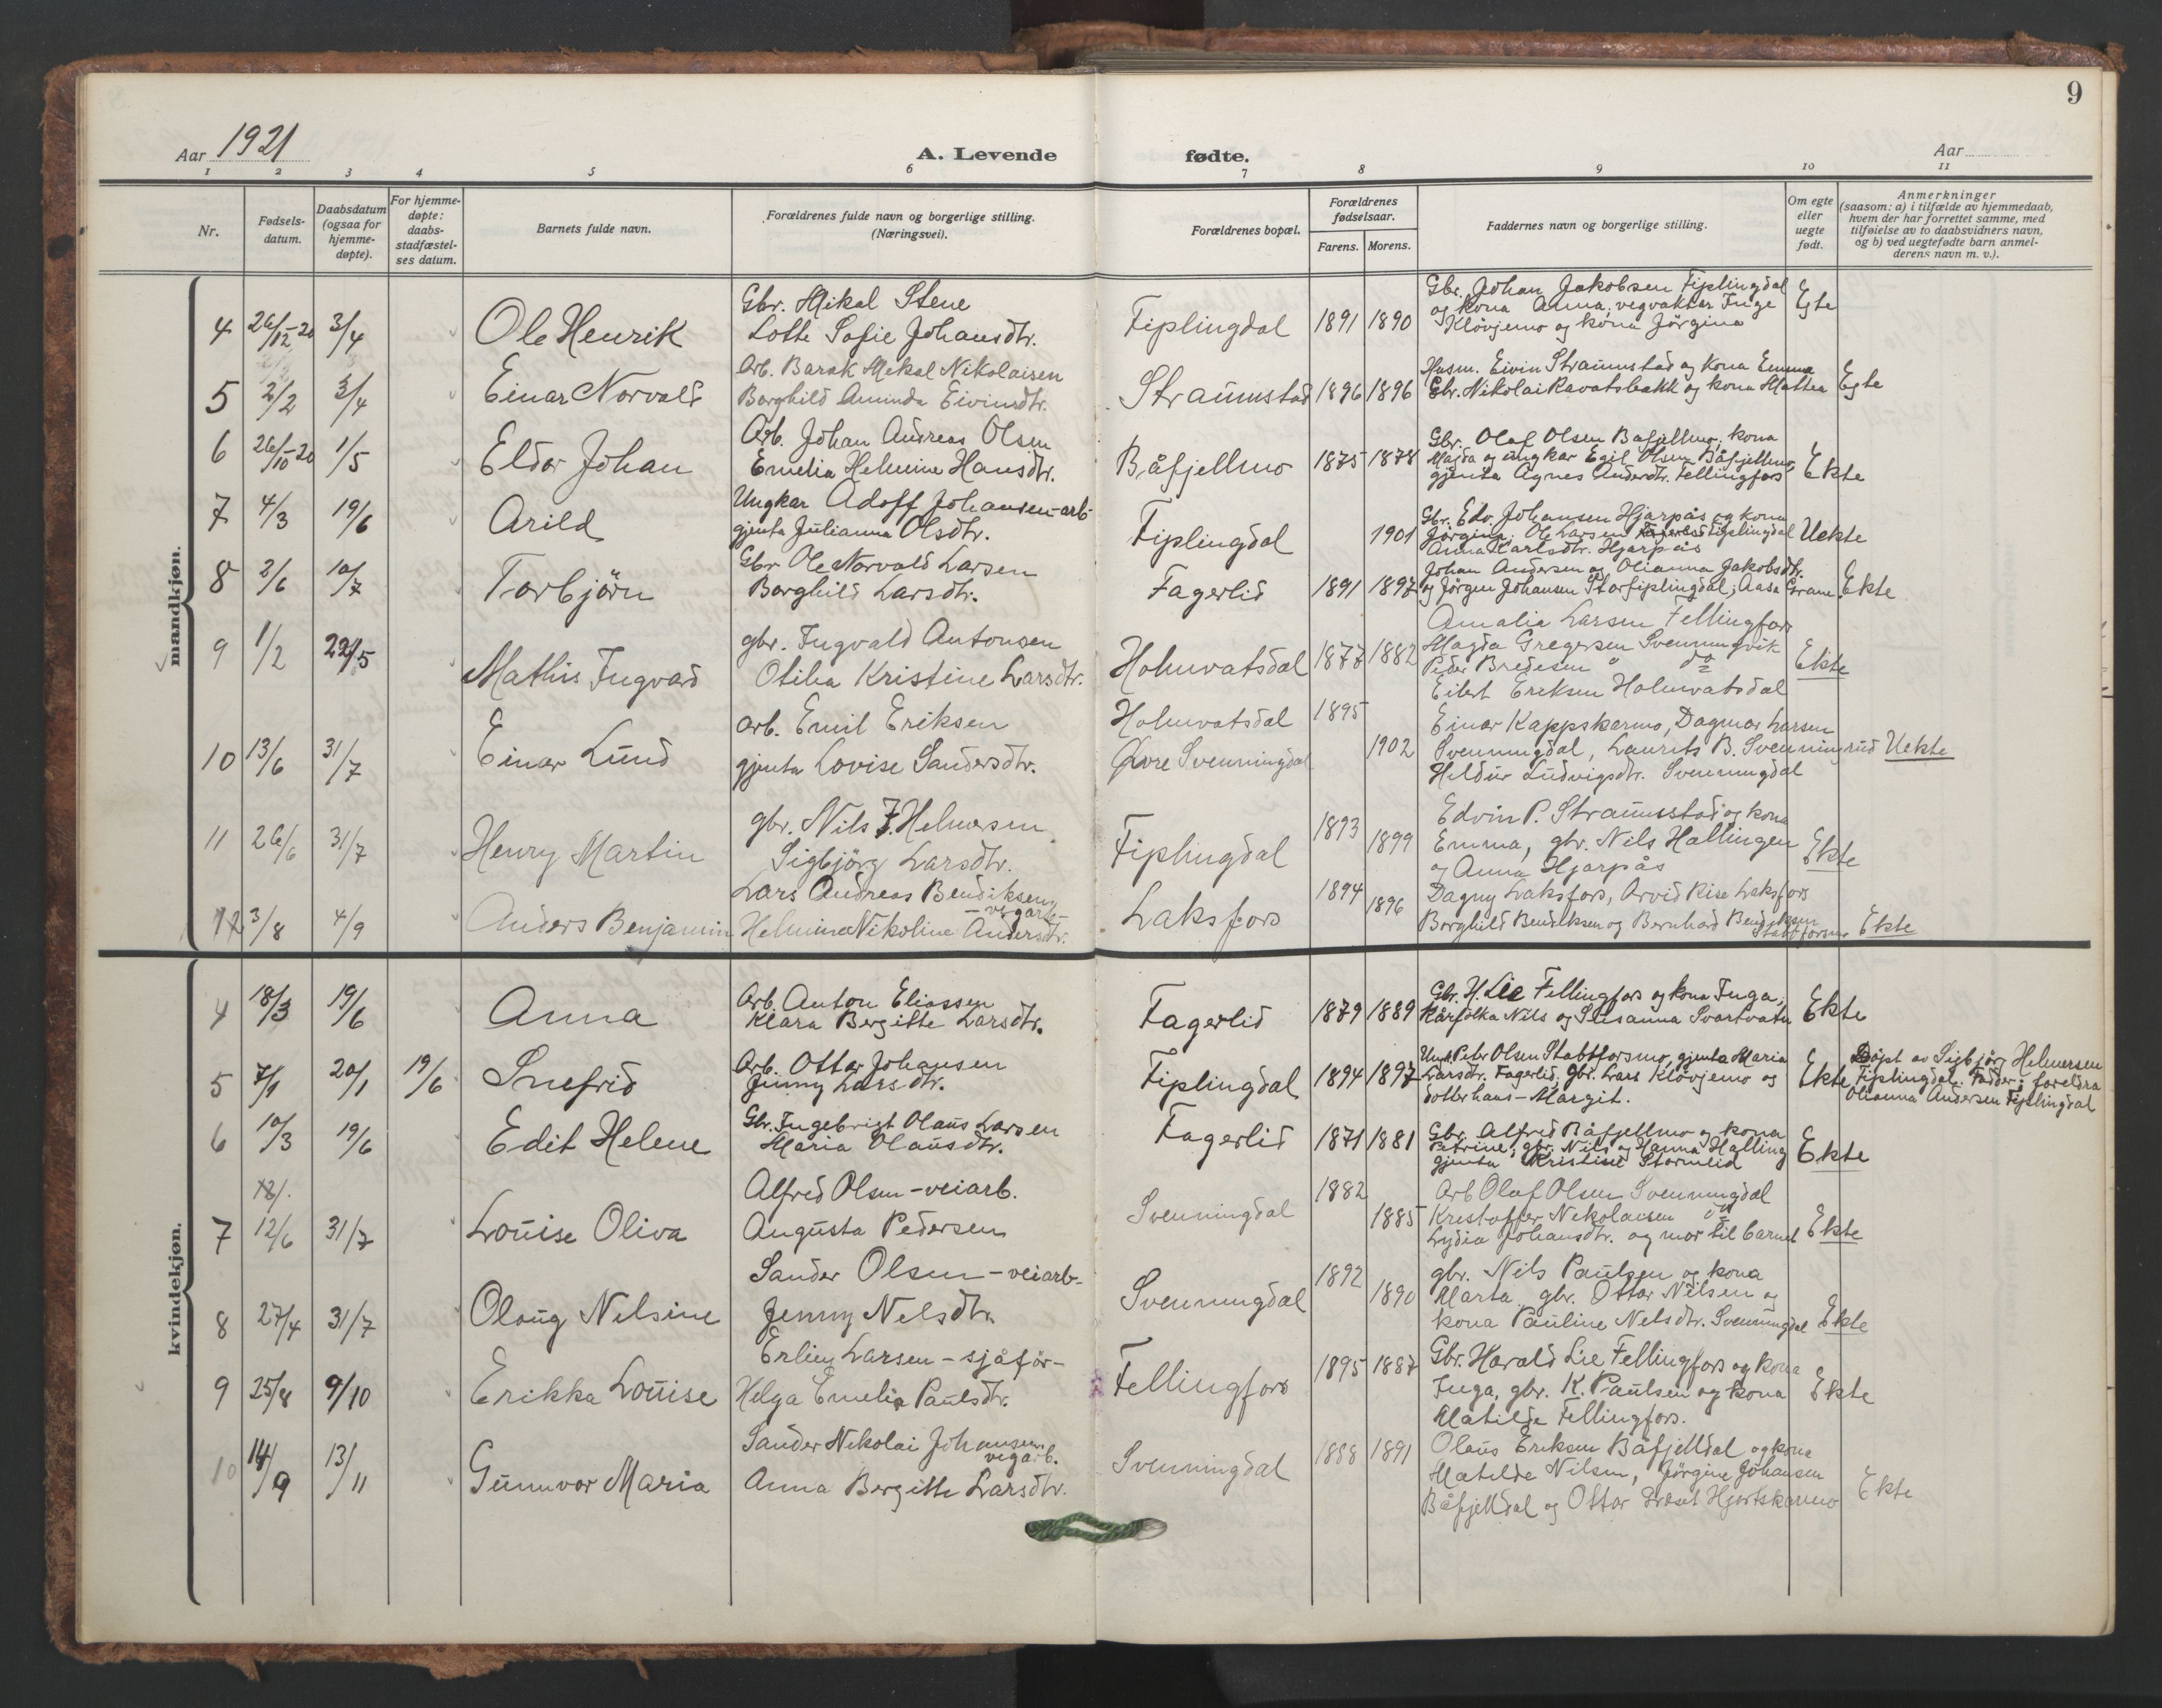 9
Aar 1921
A. Levende fødte.
Aar
1 2 3 4 5 6 7 8 9 10 11
Nr.
Fødsels-
datum.
Daabsdatum
(ogsaa for
hjemme-
døpte).
For hjemme-
døpte:
daabs-
stadfæstel-
ses datum.
Barnets fulde navn.
Forældrenes fulde navn og borgerlige stilling.
(Næringsvei).
Forældrenes bopæl.
Forældrenes
fødselsaar.
Farens. Morens.
Faddernes navn og borgerlige stilling.
Om egte
eller
uegte
født.
Anmerkninger
(saasom: a) i tilfælde av hjemmedaab,
hvem der har forrettet samme, med
tilføielse av to daabsvidners navn,
og b) ved uegtefødte barn anmel-
derens navn m. v.).
mandkjøn.
4 26/12-20 3/4 Ole Henrik
Gbr. Mikal Stene
Lotte Sofie Johansdtr.
Fiplingdal 1891 1890
Gbr. Johan Jakobsen Fiplingdal
og kona Anna, vegvaktar Inge
Klövjemo og kona Jörgina
Egte
5 2/2 3/4 Einar Norvald
Arb. Barak Mikal Nikolaisen
Borghild Aminda Eivindtr.
Straumstad 1896 1896
Husm. Eivin Straumstad og kona Emma
Gbr. Nikolai Kavatsbakk og kona Mattea
Egte
6 26/10-20 1/5 Eldor Johan
Arb. Johan Andreas Olsen
Emelia Helmine Hansdtr.
Båfjellmo 1875 1878
Gbr. Olaf Olsen Båfjellmo, kona
Magda og ungkar Egil Olsen Båfjellmo,
gjenta Agnes Andersdtr. Fellingfors
Ekte
7 4/3 19/6 Arild
Ungkar Adolf Johansen-arb-
gjenta Julianna Olsdtr.
Fiplingdal 1901
Gbr. Edv. Johansen Hjarpås og kona
Jörgina; Ole Larsen Fiplingdal
Anna Karlsdtr. Hjarpås
Uekte
8 2/6 10/7 Torbjörn
Gbr Ole Norvald Larsen
Borghild Larsdtr.
Fagerlid 1891 1897
Johan Andersen og Olianna Jakobsdtr.
og Jörgen Johansen Storfiplingdal; Aasa Grane.
Ekte
9 1/2 22/5 Mathis Ingvard
gbr. Ingvald Antonsen
Otilia Kristine Larsdtr.
Holmvatsdal 1877 1882
Amalia Larsen Fellingfors
Magda Gregersen Svenningvik
Peder Bredesen " do
Eilert Eriksen Holmvatsdal
Ekte
10 13/6 31/7 Einar Lund
arb. Emil Eriksen
gjenta Lovise Sandersdtr.
Holmvatsdal 1895
Øvre Svenningdal 1902
Einar Kappskarmo, Dagmar Larsen
Svenningdal, Laurits B. Svenningrud
Heldur Ludvigsdtr. Svenningdal
Uekte
11 26/6 31/7 Henry Martin
gbr. Nils J. Helmersen
Sigbjörg Larsdtr.
Fiplingdal 1893 1899
Edvin P. Straumstad og kona
Emma, gbr. Nils Hallingen
og Anna Hjarpås
Ekte
12 3/8 4/9 Anders Benjamin
Lars Andreas Bendiksen
- vegarb-
Helmine Nikoline Andersdtr.
Laksfors 1894 1896
Dagny Laksfors, Arvid Rise Laksfors
Borghild Bendiksen og Bernhard Bendiksen
Stabbforsmo
Ekte
kvindekjøn.
4 18/3 19/6 Anna
Arb. Anton Eliassen
Klara Bergitte Larsdtr.
Fagerlid 1879 1889
Gbr. H. Lie Fellingfors og kona Inga,
Kårfolka Nils og Susanna Svartvatn
Ekte
5 7/1 20/1 19/6 Snefrid
Arb. Ottar Johansen
Jenny Larsdtr.
Fiplingdal 1894 1897
Ungk. Peter Olsen Stabbforsmo, gjenta Maria
Larsdtr. Fagerlid, gbr. Lars Klövjemo og
dotter hans - Margit.
Ekte
Döpt av Sigbjörg Helmersen
Fiplingdal. Fadder: foreldra
Olianna Andersen Fiplingdal
6 10/3 19/6 Edit Helene
Gbr. Ingebrigt Olaus Larsen
Maria Olausdtr.
Fagerlid 1871 1881
Gbr. Alfred Båfjellmo og kona
Petrine, gbr. Nils og Hanna Halling
gjenta Kristine Stormlid
Ekte
18/.
7 12/6 31/7 Louise Oliva
Alfred Olsen - veiarb.
Augusta Pedersen
Svenningdal 1882 1885
Arb Olaf Olsen Svenningdal
Kristoffer Nikolaisen do
Lydia Johansdtr. og mor til barnet
Ekte
8 27/4 31/7 Olaug Nelsine
Sander Olsen - veiarb-
Jenny Nelsdtr.
Svenningdal 1892 1890
gbr. Nils Paulsen og kona
Marta, gbr. Ottar Nilsen og
kona Pauline Nelsdtr. Svenningdal
Ekte
9 25/8 9/10 Erikka Louise
Erling Larsen - sjåför-
Helga Emelia Paulsdtr.
Fellingfors 1895 1887
Gbr. Harald Lie Fellingfors og kona
Inga, gbr. K. Paulsen og kona
Matilde Fellingfors.
Ekte
10 14/9 13/11 Gunnvor Maria
Sander Nikolai Johansen
vegarb.
Anna Bergitte Larsdtr.
Svenningdal 1888 1891
Olaus Eriksen Båfjelldal og kona
Matelde Nilsen, Jörgine Johansen
Båfjelldal og Ottar Hjortskarmo
Ekte